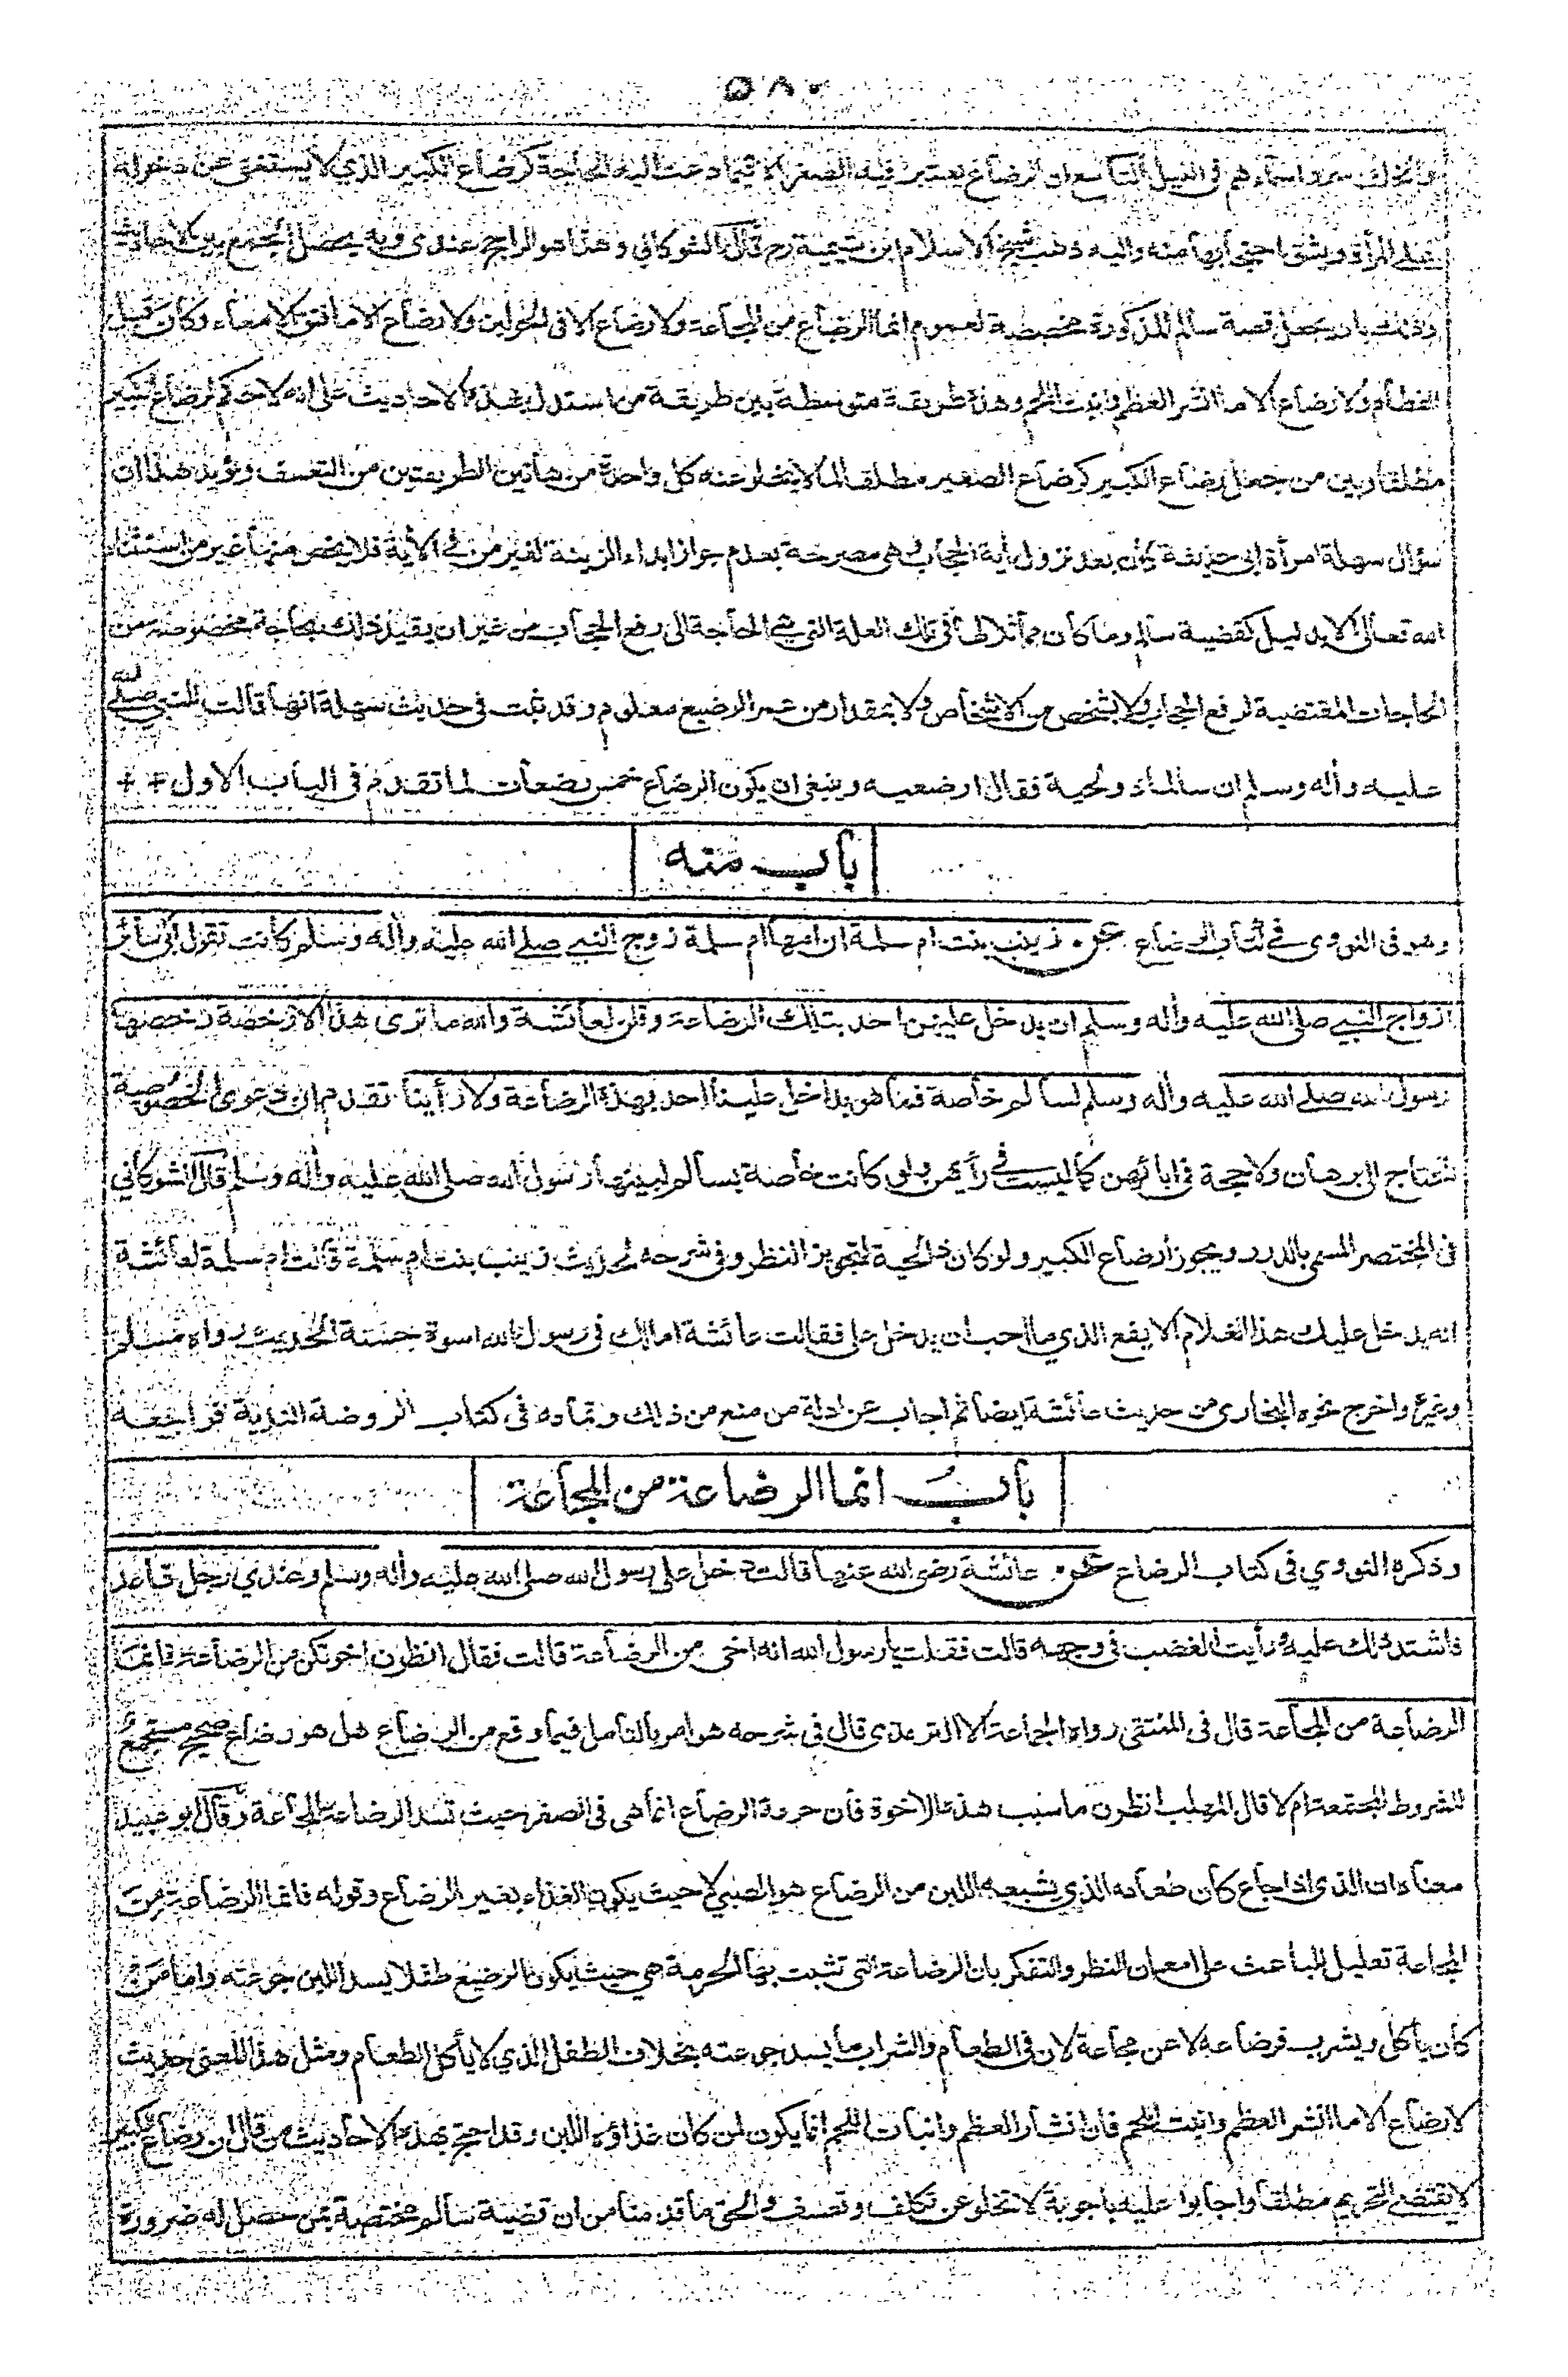 ٥٨٠
في النيل التاسع ان الرضاع يعتبر فيه الصغر الا فيما دعت اليه الحاجة كرضاع الكبير الذي لا يستغنى عن دخوله
على المرأة ويشق احتجابها منه واليه ذهب شيخ الاسلام ابن تيمية رح قال الشوكاني وهذا هو الراجح عندي وبه يحصل الجمع بين الاحاديث
وذلك بان يجعل قصة سالم المذكورة مخصصة لعموم انما الرضاع من المجاعة ولا رضاع الا في الحولين ولا رضاع الا ما فتق الامعاء وكان قبل
الفطام ولا رضاع الا ما انشر العظم وانبت اللحم وهذه طريقة متوسطة بين طريقة من استدل بهذه الاحاديث على انه لا حكم لرضاع الكبير
مطلقا وبين من جعل رضاع الكبير كرضاع الصغير مطلقا لما لا يخلو عنه كل واحدة من هاتين الطريقتين من التعسف ويؤيد هذا ان
سؤال سهلة امرأة ابي حذيفة كان بعد نزول أية الحجاب وهي مصرحة بعدم جواز ابداء الزينة لغير من في الأية فلا يخص منها غير من استثناه
الله تعالى الا بدليل كقضية سالم وما كان مماثلا لها في تلك العلة التي هي الحاجة الى رفع الحجاب من غير ان يقيد ذلك بحاجة مخصوصة من
الحاجات المقتضية لرفع الحجاب ولا بشخص من الاشخاص ولا بمقدار من عمر الرضيع معلوم وقد ثبت في حديث سهلة انها قالت للنبي صلى الله
عليه وأله وسلم ان سالما ذو لحية فقال ارضعيه وينبغي ان يكون الرضاع خمس رضعات لما تقدم في الباب الاول ++
باب منه
وهو في النووي في كتاب الرضاع عن زينب بنت ام سلمة ان امها ام سلمة زوج النبي صلى الله عليه وأله وسلم كانت تقول ابى سائر
ازواج النبي صلى الله عليه وأله وسلم ان يدخل عليهن احد بتلك الرضاعة وقلن لعائشة والله ما نرى هذا الا رخصة رخصها
رسول الله صلى الله عليه وأله وسلم لسالم خاصة فما هو بداخل علينا احد بهذه الرضاعة ولا رأينا تقدم ان دعوى الخصوصية
تحتاج الى برهان ولا حجة في ابائهن كما ليست في رأيهن ولو كانت خاصة بسالم لبينها رسول الله صلى الله عليه وأله وسلم قال الشوكاني
في المختصر المسمى بالدرر ويجوز ارضاع الكبير ولو كان ذا لحية لتجويز النظر وفي شرحه لحديث زينب بنت ام سلمة قالت ام سلمة لعائشة
انه يدخل عليك هذا الغلام الايفع الذي ما احب ان يدخل علي فقالت عائشة اما لك في رسول الله اسوة حسنة الحديث رواه مسلم
وغيره واخرج نحوه البخاري من حديث عائشة ايضا ثم اجاب عن ادلة من منع من ذلك وتمامه في كتاب الروضة الندية فراجعه
باب انما الرضاعة من المجاعة
وذكره النووي في كتاب الرضاع عن عائشة رضي الله عنها قالت دخل علي رسول الله صلى الله عليه وأله وسلم وعندي رجل قاعد
فاشتد ذلك عليه ورأيت الغضب في وجهه قالت فقلت يا رسول الله انه اخي من الرضاعة قالت فقال انظرن اخوتكن من الرضاعة فانما
الرضاعة من المجاعة قال في المنتقى رواه الجماعة الا الترمذي قال في شرحه هو امر بالتأمل فيما وقع من الرضاع هل هو رضاع صحيح مستجمع
للشروط المجتمعة ام لا قال المهلب انظرن ما سبب هذه الاخوة فان حرمة الرضاع انما هي في الصغر حيث تسد الرضاعة المجاعة وقال ابو عبيد
معناه ان الذي اذا جاع كان طعامه الذي يشبعه اللبن من الرضاع هو الصبي لا حيث يكون الغذاء بغير الرضاع وقوله فانما الرضاعة من
المجاعة تعليل للباعث على امعان النظر والتفكر بان الرضاعة التي تثبت بها الحرمة هي حيث يكون الرضيع طفلا يسد اللبن جوعته واما من
كان يأكل ويشرب فرضاعه لا عن مجاعة لان في الطعام والشراب ما يسد جوعته بخلاف الطفل الذي لا يأكل الطعام ومثل هذا المعنى حديث
لا رضاع الا ما انشر العظم وانبت اللحم فان انشار العظم وانبات اللحم انما يكون لمن كان غذاؤه اللبن وقد احتج بهذه الاحاديث من قال ان رضاع الكبير
لا يقتضي التحريم مطلقا واجابوا عليه باجوبة لا تخلو عن تكلف وتعسف والحق ما قدمنا من ان قضية سالم مختصة بمن حصل له ضرورة